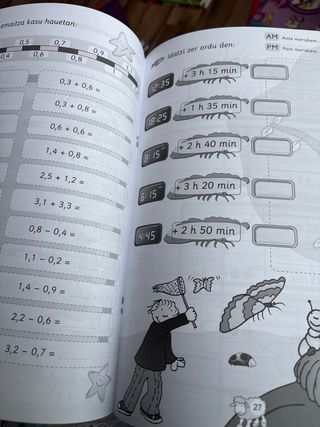 emaitza kasu hauetan:
0,5 0,7 0,9
0,4 0,6 0,8 1
0,3 + 0,6 =
0,3 + 0,8 =
0,6 + 0,6 =
1,4 + 0,8 =
2,5 + 1,2 =
3,1 + 3,3 =
0,8 – 0,4 =
1,1 – 0,2 =
1,4 – 0,9 =
2,2 – 0,6 =
3,2 – 0,7 =
Idatzi zer ordu den:
AM Ante meridiem
PM Post meridiem
12:35 + 3 h 15 min
18:25 + 1 h 35 min
8:15 + 2 h 40 min
6:15 + 3 h 20 min
4:45 + 2 h 50 min
27